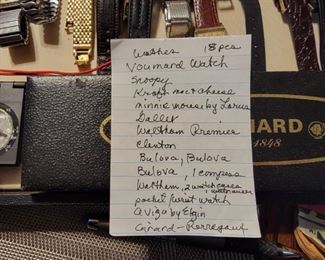 Watches 18 pcs
Voumard Watch
Snoopy
Kraft mac & cheese
minnie mouse by Lorus
Dallet
Waltham Premier
Clinton
Bulova, Bulova
Bulova, 1 compass
Waltham, 2 watch cases
pocket/wrist watch
by Elgin
Girard-Perregaux
MARD
1848